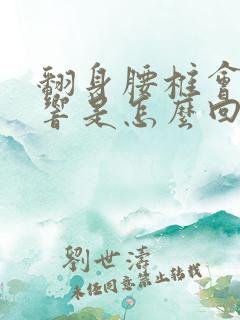 翻身腰柱會
響是怎麼回
劉世濤
未经同意禁止转载